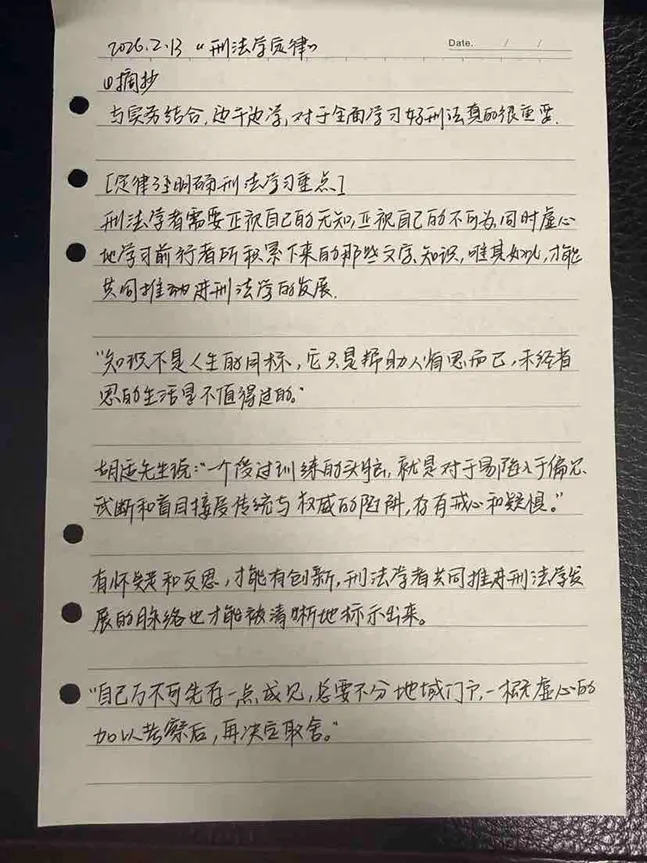 2026.2.13 “刑法学定律” Date. / /
①摘抄
与实务结合,边干边学,对于全面学习好刑法真的很重要.
[定律7:明确刑法学习重点]
刑法学者需要正视自己的无知,正视自己的不可为,同时虚心
地学习前行者所积累下来的那些文字、知识,唯其如此,才能
共同推动刑法学的发展.
“知识不是人生的目标,它只是帮助人省思而已,未经省
思的生活是不值得过的。”
胡适先生说:“一个受过训练的头脑,就是对于易陷入于偏见、
武断和盲目接受传统与权威的陷阱,存有戒心和疑惧。”
有怀疑和反思,才能有创新,刑法学者共同推进刑法学发
展的脉络也才能被清晰地标示出来。
“自己万不可先存一点成见,总要不分地域门户,一概虚心的
加以考察后,再决定取舍。”